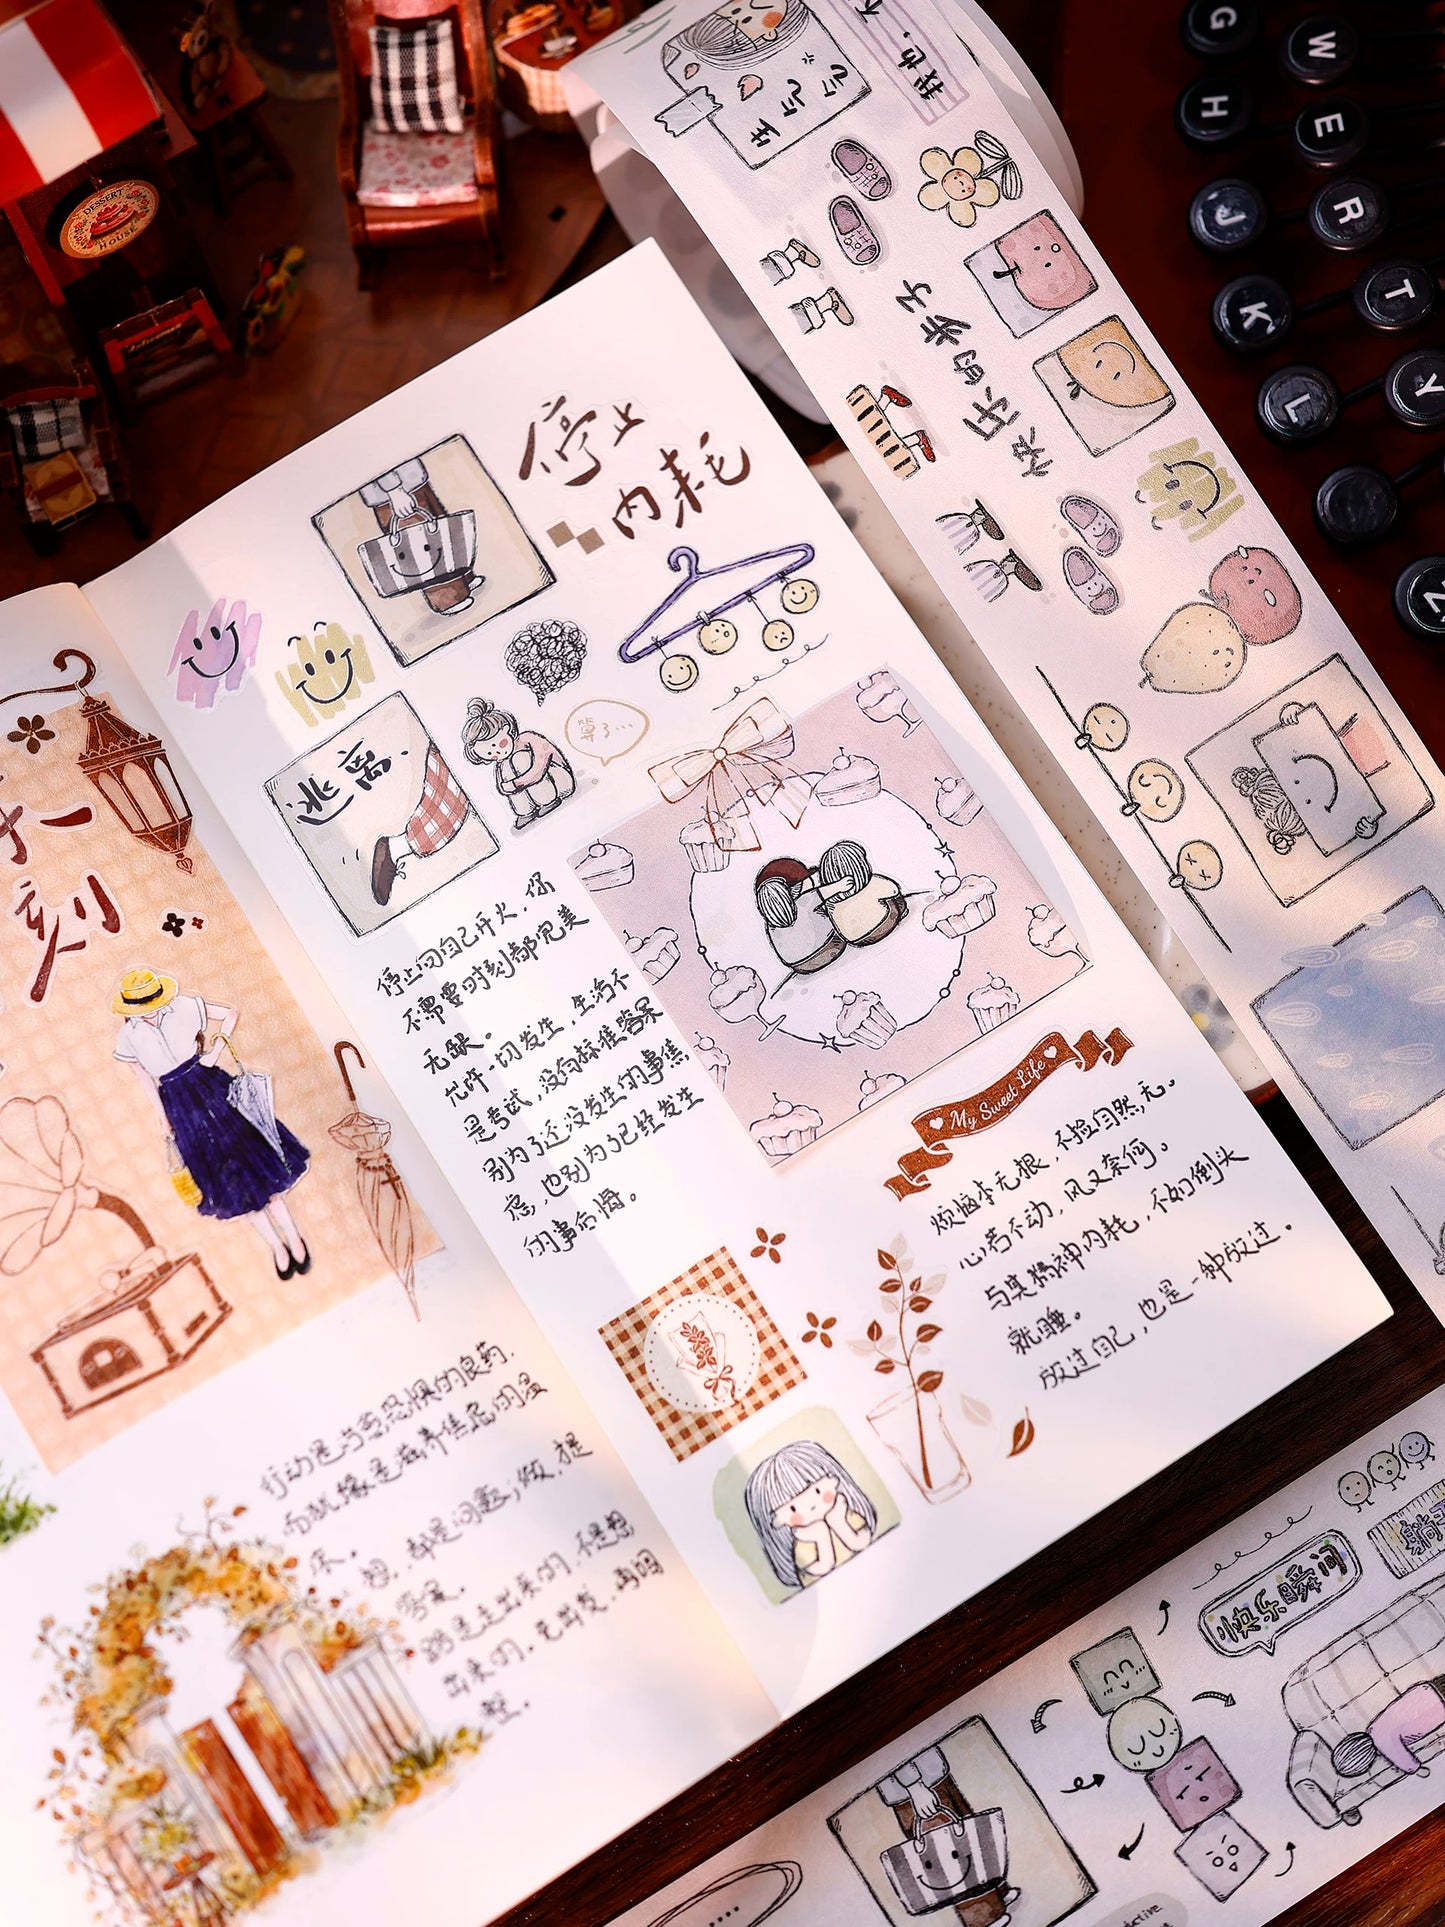 停止
内耗
逃离
算了...
停止向自己开火，你
不需要时刻都完美
无缺。
允许一切发生，生活不
是考试，没有标准答案
别为了还没发生的事焦
虑，也别为了已经发生
的事后悔。
My Sweet Life
烦恼本无根，不捡自然无。
心若不动，风又奈何。
与其精神内耗，不如倒头
就睡。
放过自己，也是一种放过。
一
刻
行动是治愈恐惧的良药，
而犹豫是滋养焦虑的温
床。
想，都是问题；做，才是
答案。
路是走出来的，不是想
出来的。先出发，再调
整。
生气气气
我也.不
快乐的步子
快乐瞬间
躺平
DESSERT
HOUSE
G
W
H
E
J
R
K
T
L
Y
Z